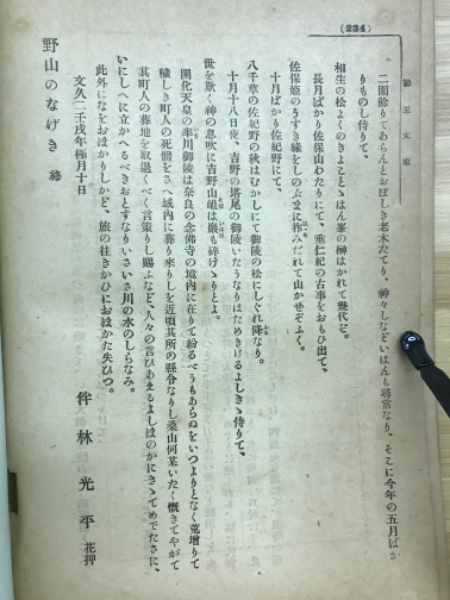 (234)
勤王文庫
二圍餘りてあらんとおぼしき老木たてり、神々しなどいはんも尋常なり、そこに今年の五月ばか
りものし侍りて、
相生の松よくのきよことゝはん峯の榊はかれて幾代ぞ。
長月ばかり佐保山わたりにて、垂仁紀の古事をおもひ出て、
佐保姫のうすき緣をしのぶまに柞みだれて山かせぞふく。
十月ばかり佐紀野にて、
八千草の佐紀野の秋はむかしにて御陵の松にしぐれ降なり。
十月十八日夜、吉野の塔尾の御陵いたうなりはためきけるよしきゝ侍りて、
世を欺く神の息吹に吉野山嶇は巖も碎けゝりとよ。
開化天皇の率川御陵は奈良の念佛寺の境内に在りて紛るべうもあらぬをいつよりとなく荒增りて
穢しき町人の死體をさへ域内に葬り來りしを近頃其所の縣令なりし桑山何某いたく慨きてやがて
其町人の葬地を取退くべく言策りし賜ふなど、人々の言ひあえるよしほのかにきゝてめでたさに、
いにしへに立かへるべきおとすなりいさいさ川の水のしらなみ。
此外になをおほかりしかど、旅の往きかひにおほかた失ひつ。
文久二壬戌年極月十日
伴林光平 花押
野山のなげき 終